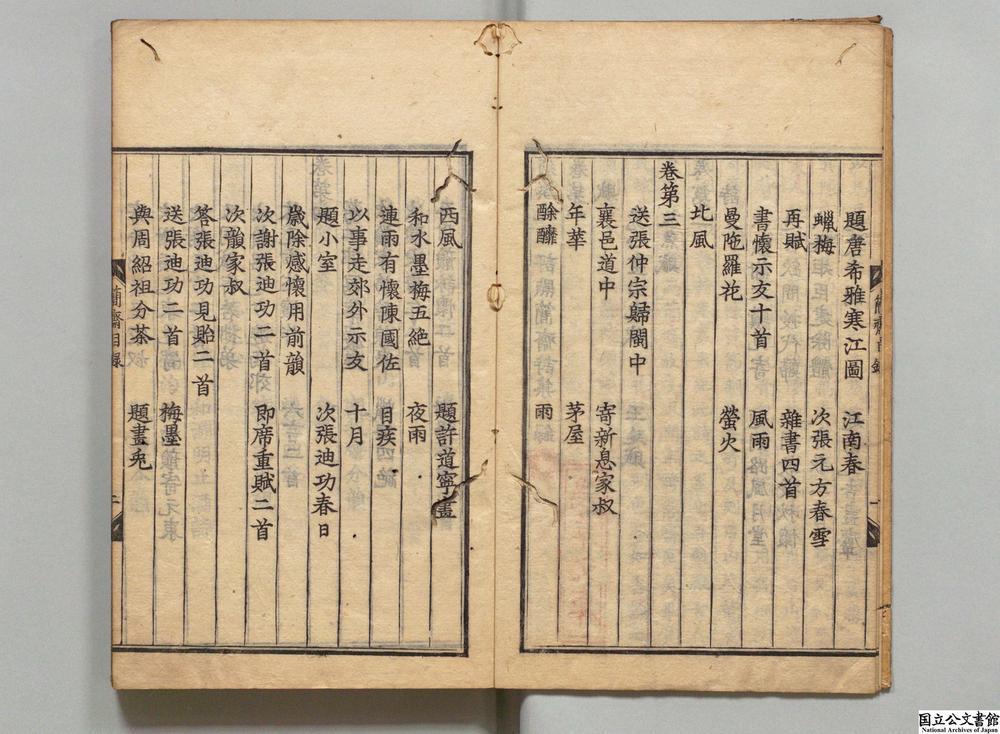 題唐希雅寒江圖　江南春
蠟梅　次張元方春雪
再賦　雜書四首
書懷示友十首　風雨
曼陁羅花　螢火
北風
卷第三
送張仲宗歸閩中
襄邑道中　寄新息家叔
年華　茅屋
酴醿　雨
西風　題許道寧畫
和水墨梅五絶　夜雨
連雨有懷陳國佐　目疾四絶
以事走郊外示友　十月
題小室　次張迪功春日
歲除感懷用前韻
次謝張迪功二首　即席重賦二首
次韻家叔
答張迪功見貽二首
送張迪功二首　梅墨
與周紹祖分茶　題畫兎
簡齋目錄
国立公文書館
National Archives of Japan